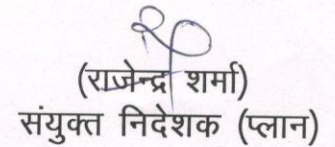 (राजेन्द्र शर्मा)
संयुक्त निदेशक (प्लान)